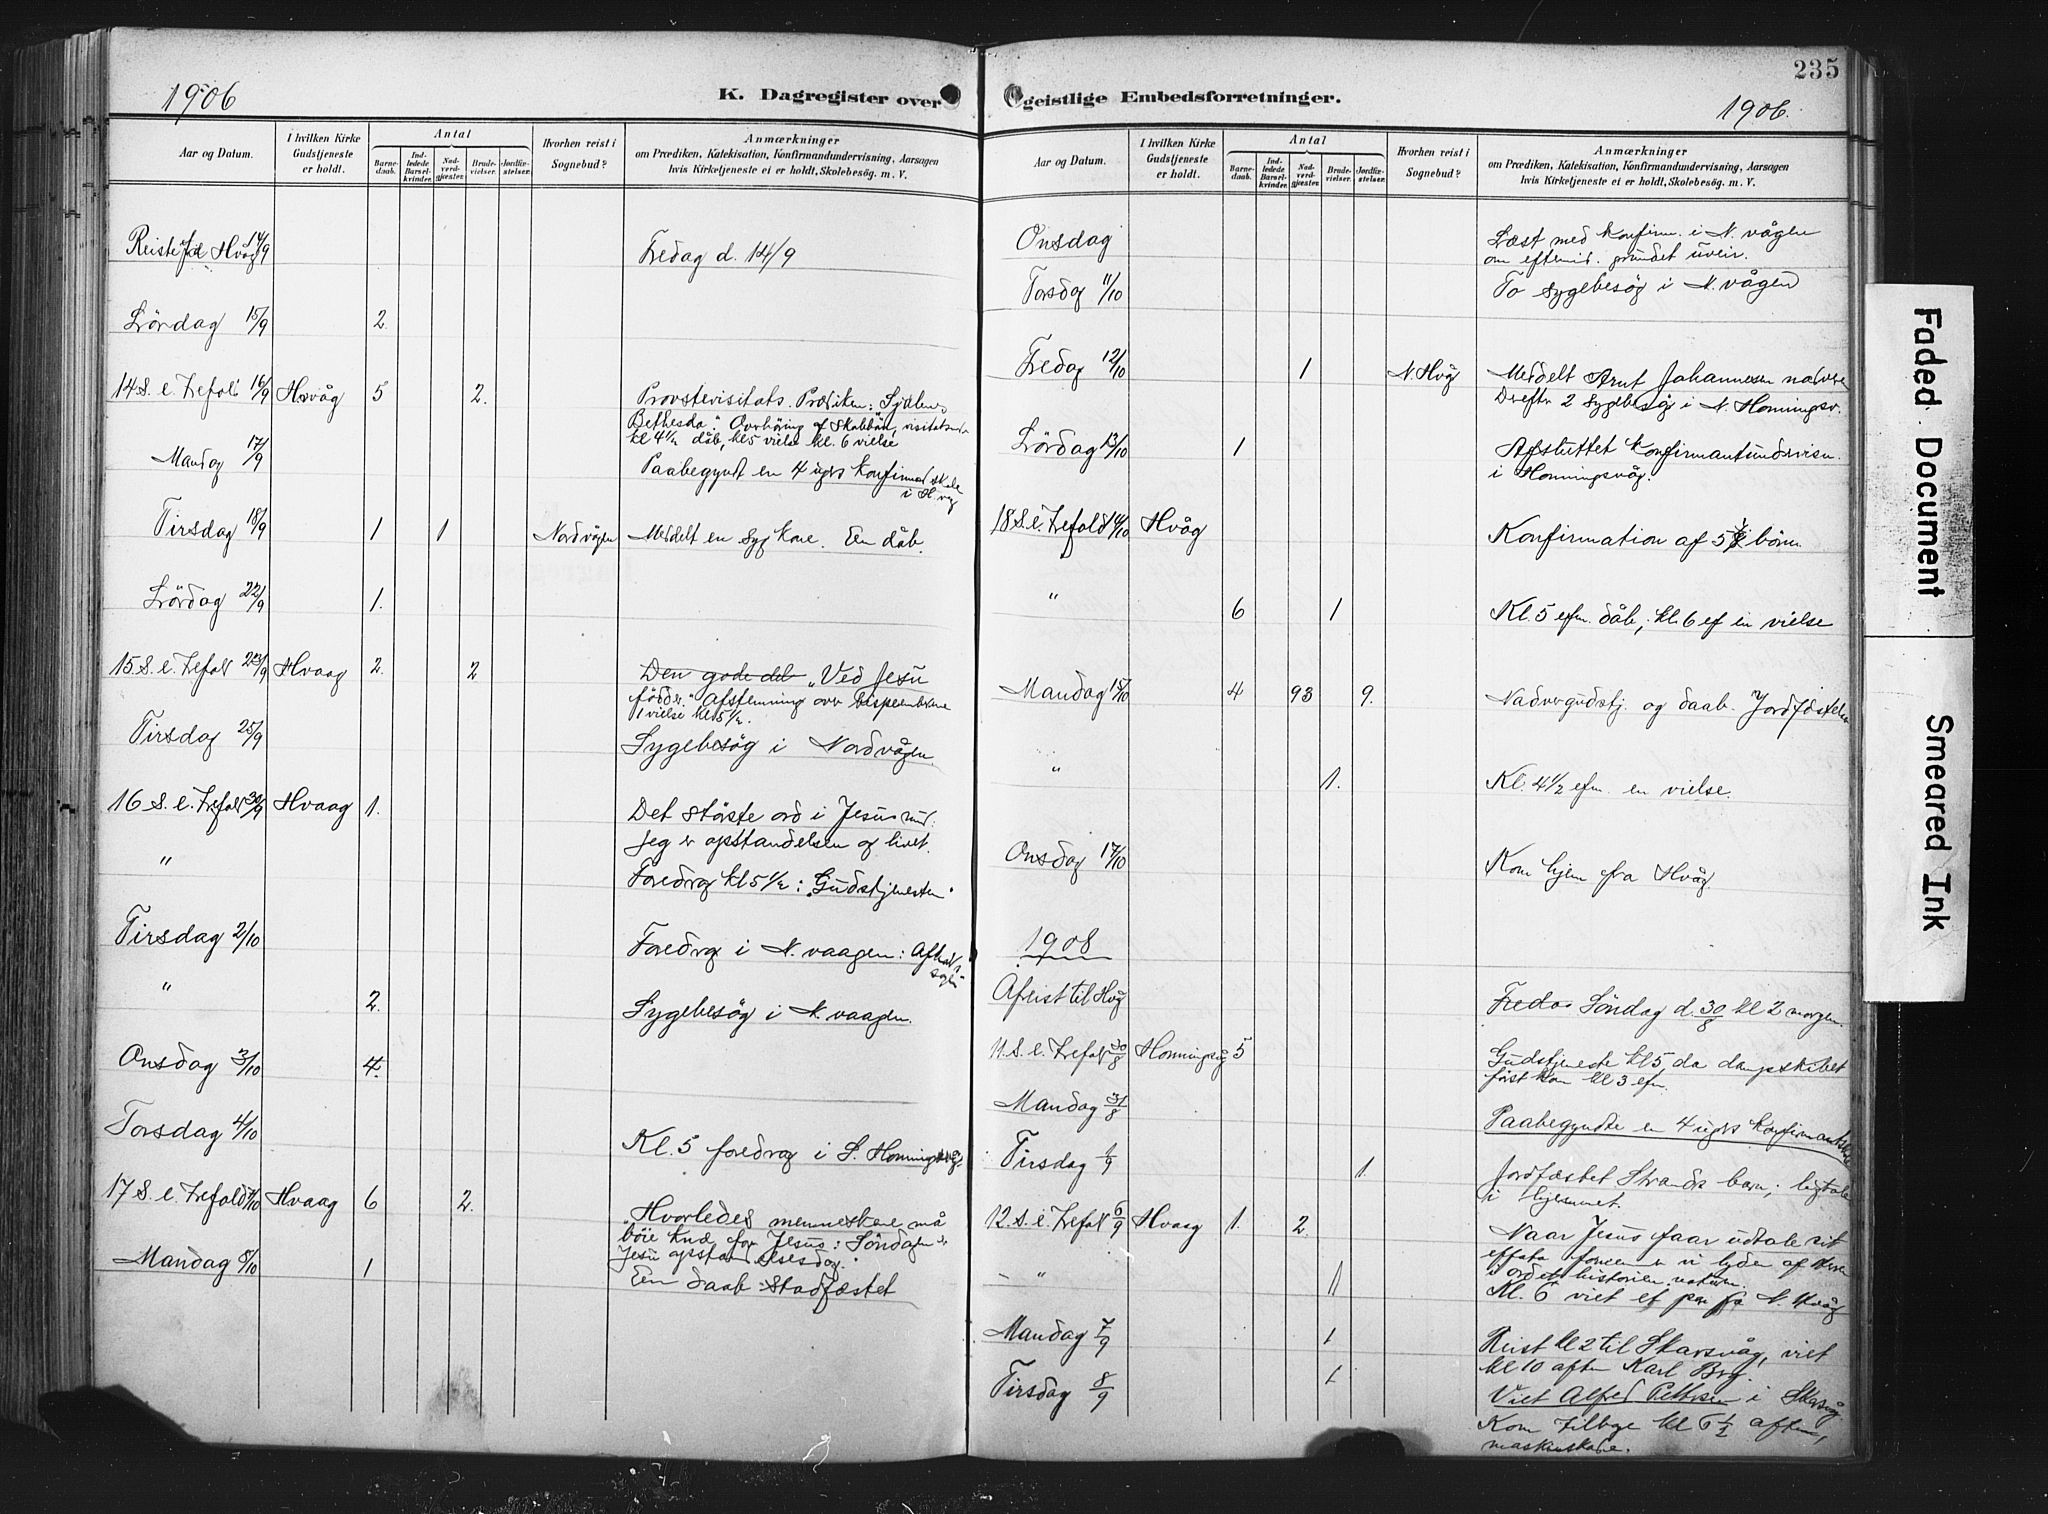 1906
K. Dagregister over
Aar og Datum.
I hvilken Kirke Gudstjeneste er holdt.
Antal
Barne-daab.
Ind-ledede Barsel-kvinder.
Nad-verd-gjester.
Brude-vielser.
Jordfæ-stelser.
Hvorhen reist i Sognebud?
Anmærkninger
om Prædiken, Katekisation, Konfirmandundervisning, Aarsagen
hvis Kirketjeneste ei er holdt, Skolebesøg. m. V.
Reiste til Hvåg 14/9 Fredag d. 14/9
Lördag 15/9 2.
14 S. e. Trefol. 16/9 Hvåg 5 2. Provstevisitats. Prædiken: Sjælens
Bethesda". Overhöring af Skabban, visitats
kl 4 1/2 dåb, kl 5 vielse kl. 6 vielse
Mandag 17/9 Paabegyndt en 4 ugrs konfirmandskole
i H.våg
Tirsdag 18/9 1 1 Nordvågen Meddelt en syg kone. En dåb.
Lördag 22/9 1.
15 S. e. Trefol 23/9 Hvaag 2. 2 Den gode del "Ved Jesu
födder." Afstemning over
1 vielse kl 5 1/2.
Tirsdag 25/9 Sygebesög i Nordvågen.
16 S. e. Trefol 30/9 Hvaag 1. Det störste ord i Jesus
Jeg er opstandelsen og livet.
" Foredrag kl 5 1/2: "Gudstjenesten"
Tirsdag 2/10 Foredrag i N. vaagen:
" 2. Sygebesög i N. vaagen.
Onsdag 3/10 4.
Torsdag 4/10 Kl. 5 foredrag i S. Honningsvåg.
17 S. e. Trefold 7/10 Hvaag 6 2. "Hvorledes menneskene må
böie knæ for Jesus: Söndagen er
Jesu opstandelsesdag."
Mandag 8/10 1 Een daab stadfæstet
235
geistlige Embedsforretninger.
1906.
Aar og Datum.
I hvilken Kirke Gudstjeneste er holdt.
Antal
Barne-daab.
Ind-ledede Barsel-kvinder.
Nad-verd-gjester.
Brude-vielser.
Jordfæ-stelser.
Hvorhen reist i Sognebud?
Anmærkninger
om Prædiken, Katekisation, Konfirmandundervisning, Aarsagen
hvis Kirketjeneste ei er holdt, Skolebesøg. m. V.
Onsdag Læst med konfirm. i N. vågen
om eftermid. grundet uveir.
Torsdag 11/10 To sygebesög i N. vågen
Fredag 12/10 1 N. Hvåg Meddelt Arnt Johannesen nadvere
Derefter 2 sygebesög i N. Honningsv.
Lördag 13/10 1 Afsluttet konfirmantundervisn.
i Honningsvåg.
18 S. e. Trefold 14/10 Hvåg Konfirmation af börn.
" 6 1 Kl. 5 efm. dåb, kl. 6 ef en vielse
Mandag 15/10 4 93 9. Nadvergudstj. og daab. Jordfæstelse
" 1. Kl. 4 1/2 efm. en vielse.
Onsdag 17/10 Kom hjem fra Hvåg.
1908
Afreist til Hvg Fredag Söndag d. 30/8 kl 2 morgen.
11. S. e. Trefol 30/8 Honningsvåg 5 Gudstjeneste kl 5, da dampskibet
först kom kl 3 efm.
Mandag 31/8 Paabegyndte en 4 ugrs konfirmantskole
Tirsdag 1/9 1 Jordfæstet Strands barn; ligtale
i hjemmet.
12. S. e. Trefol 6/9 Hvaag 1. 2. Naar Jesus faar udtale sit
effata i ordet historien naturen.
" 1 Kl. 6 viet et par fra N. Hvåg
Mandag 7/9 1 Reist kl 2 til Skarsvåg, viet
kl 10 aften Karl Brg.
Tirsdag 8/9 1 Viet Alfred Pettersen i Skarsvåg
Kom tilbage kl 6 1/2 aften,
Faded Document
Smeared Ink